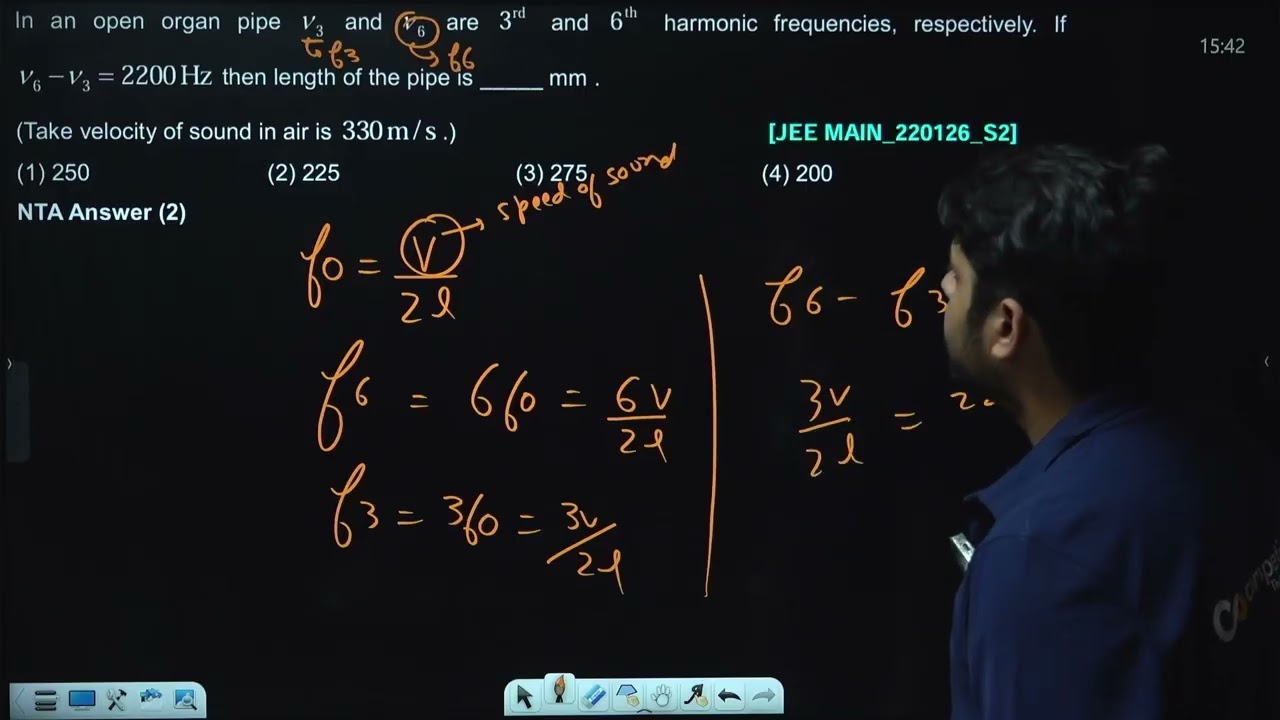 In an open organ pipe ν₃ and ν₆ are 3ʳᵈ and 6ᵗʰ harmonic frequencies, respectively. If
f3 f6
15:42
ν₆ – ν₃ = 2200 Hz then length of the pipe is _____ mm .
(Take velocity of sound in air is 330 m/s .) [JEE MAIN_220126_S2]
(1) 250 (2) 225 (3) 275 (4) 200
NTA Answer (2)
speed of sound
f0 = V/2l
f6 = 6f0 = 6V/2l
f3 = 3f0 = 3V/2l
f6 – f3
3V/2l =